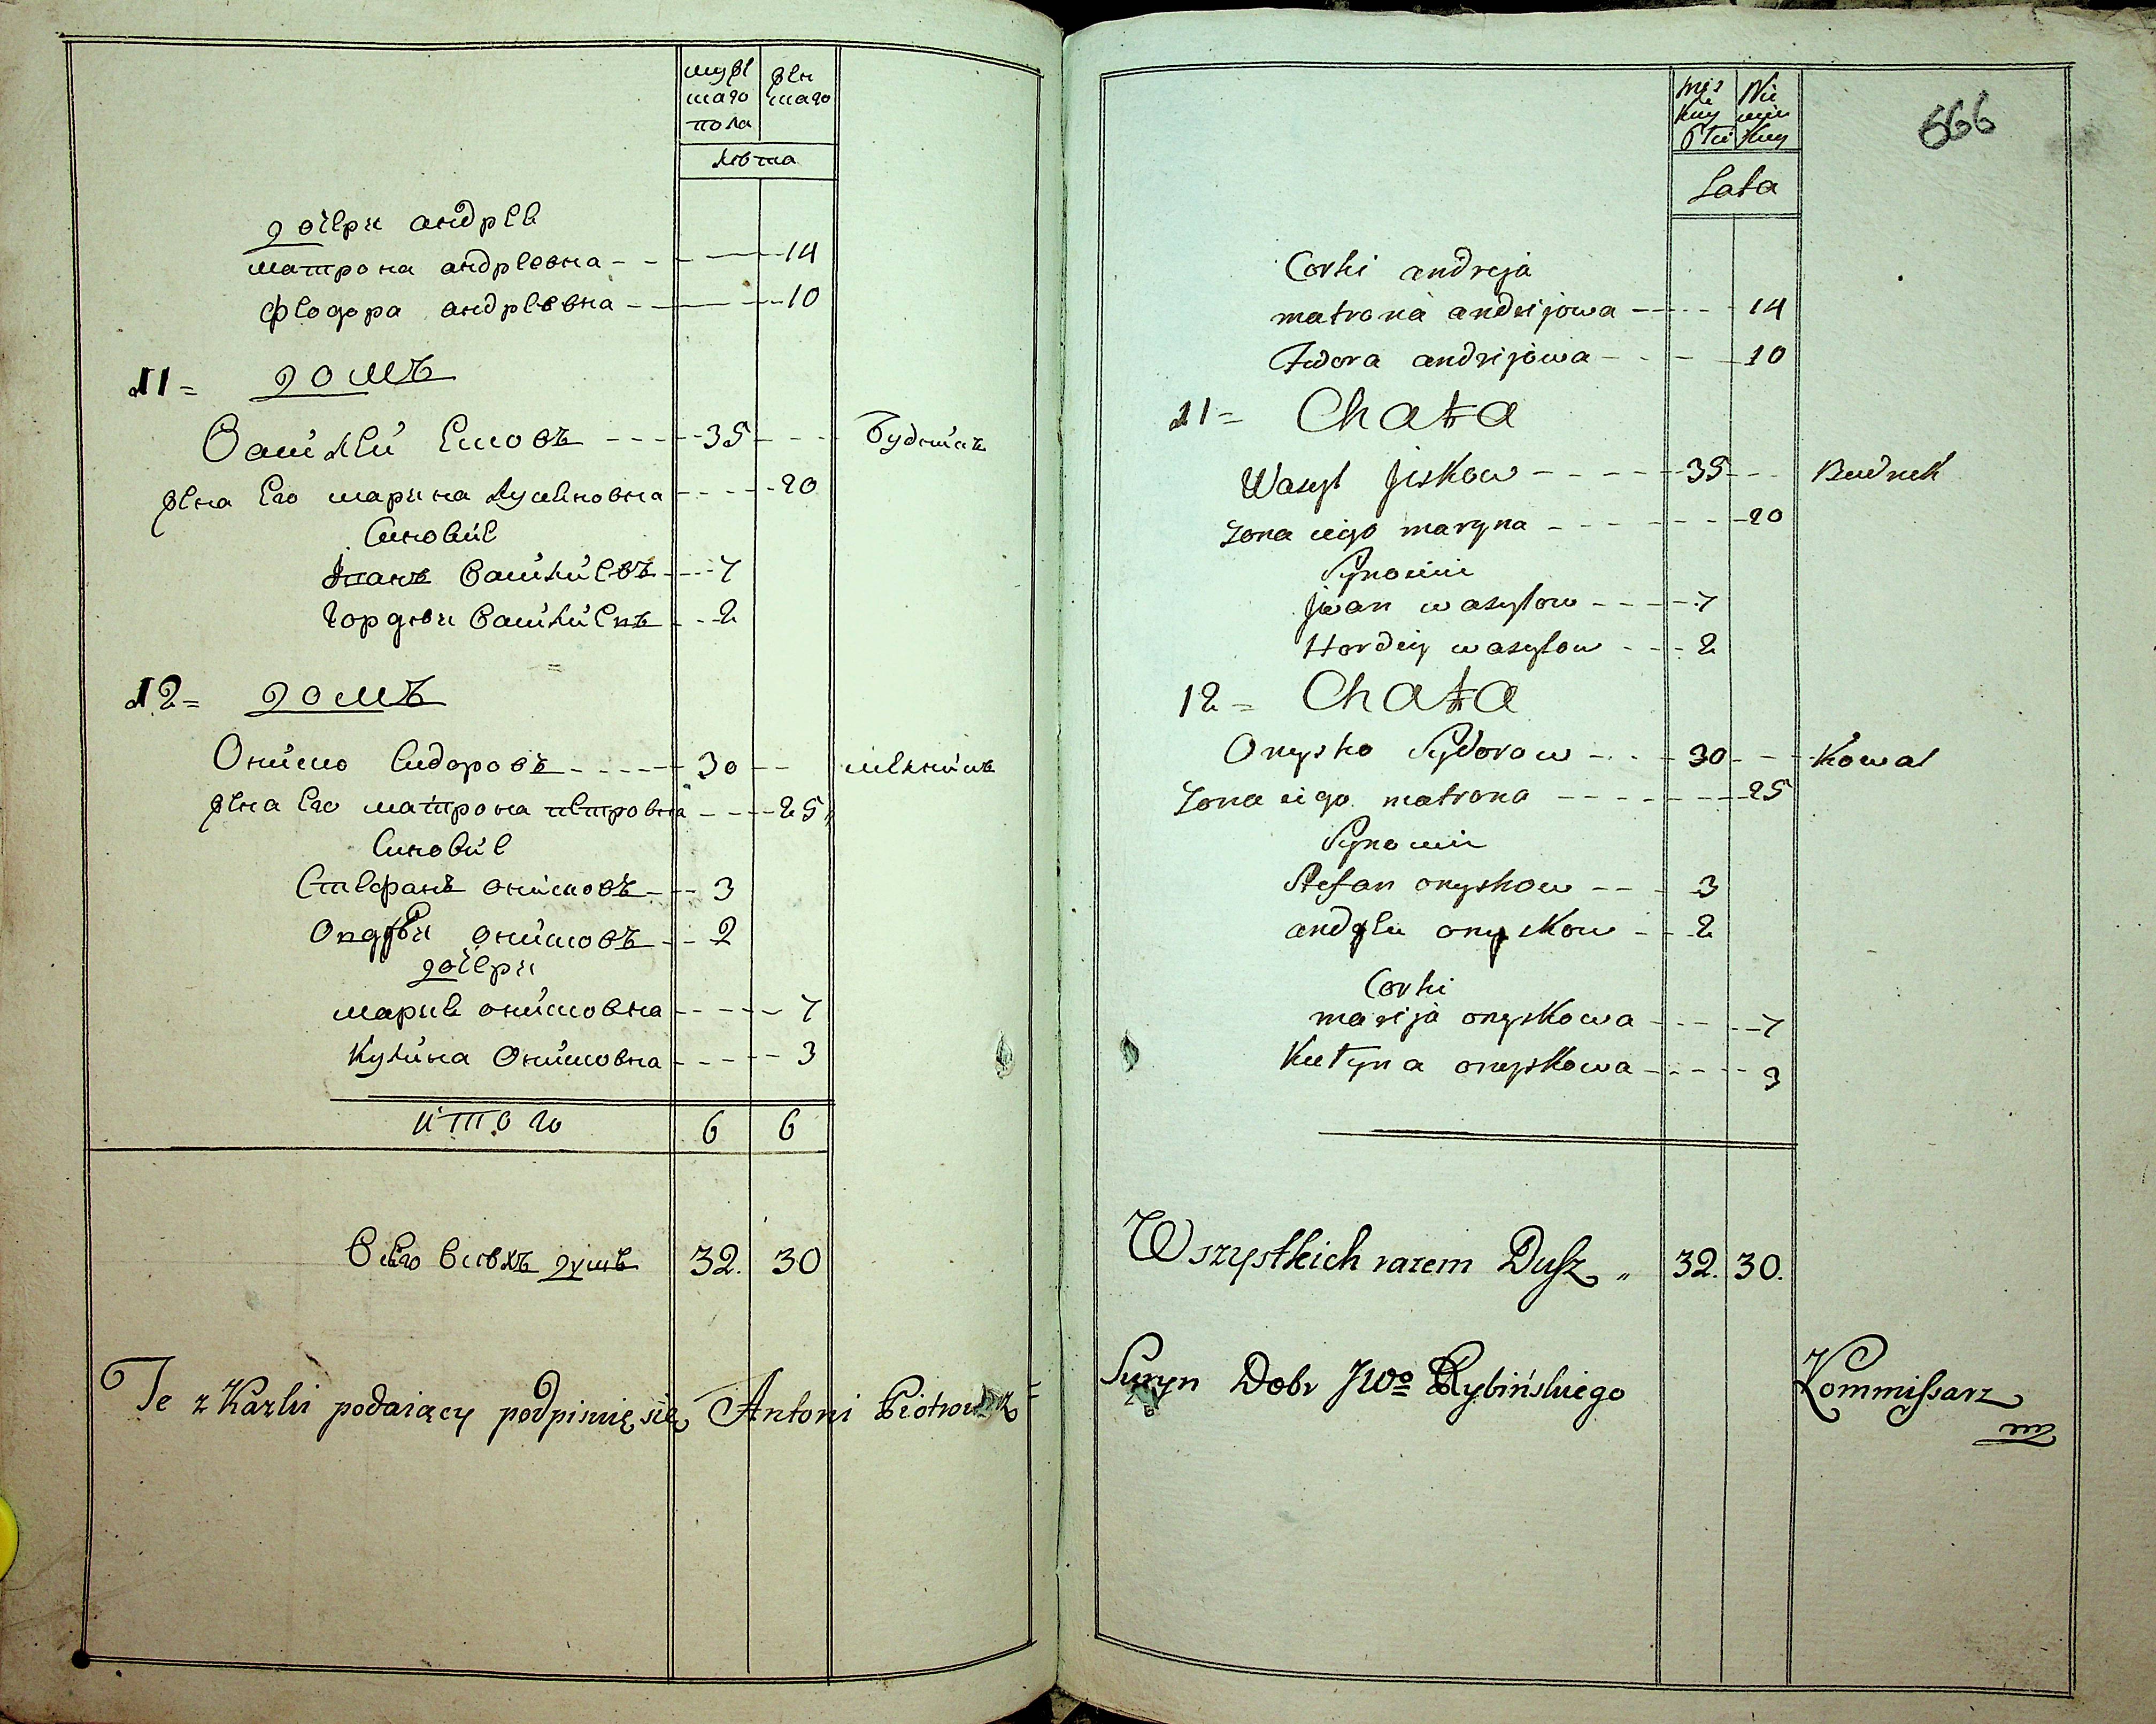 мужс
каго
пола
женс
каго
лѣта
дочери андрея
матрона андреевна 14
феодора андреевна 10
11= домъ
Василей Есковъ 35 Будникъ
жена Его марина 20
Синовие
Іванъ Васильевъ 7
Гордѣи Васильевъ 2
12= домъ
Ониско Сидоровъ 30
жена Его матрона петровна 25
Синовие
Стефанъ онисковъ 3
Андрѣи онисковъ 2
дочери
мария онисковна 7
Кулина Онисковна 3
итого 6 6
Всего всѣхъ душъ 32. 30
Te z Kazki podaiący podpisuię się Antoni
666
Męs
kiey
Płci
Nie
wies
kiey
Lata
Corki andreja
matrona andrijowa 14
Fedora andrijowa 10
11= Chata
Wasyl Jiskow 35 Budnik
Zona iego maryna 20
Synowie
Jwan wasylow 7
Hordey wasylow 2
12= Chata
Onysko Sydorow 30 Kowal
Zona iego matrona 25
Synowie
Stefan onyskow 3
andrei onyskow 2
Corki
marija onyskowa 7
Kulyna onyskowa 3
Wszystkich razem Dusz „ 32. 30.
Dobr JWo Rybińskiego Kommissarz
mp